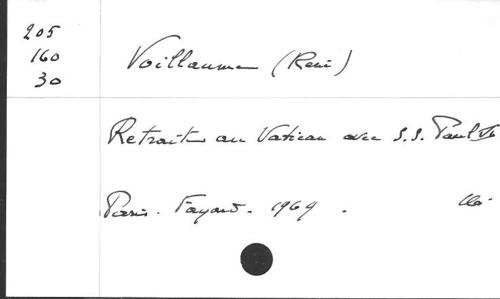 205
160
30
Voillaume (René)
Retraite au Vatican avec S.S. Paul VI
Paris. Fayard. 1969.